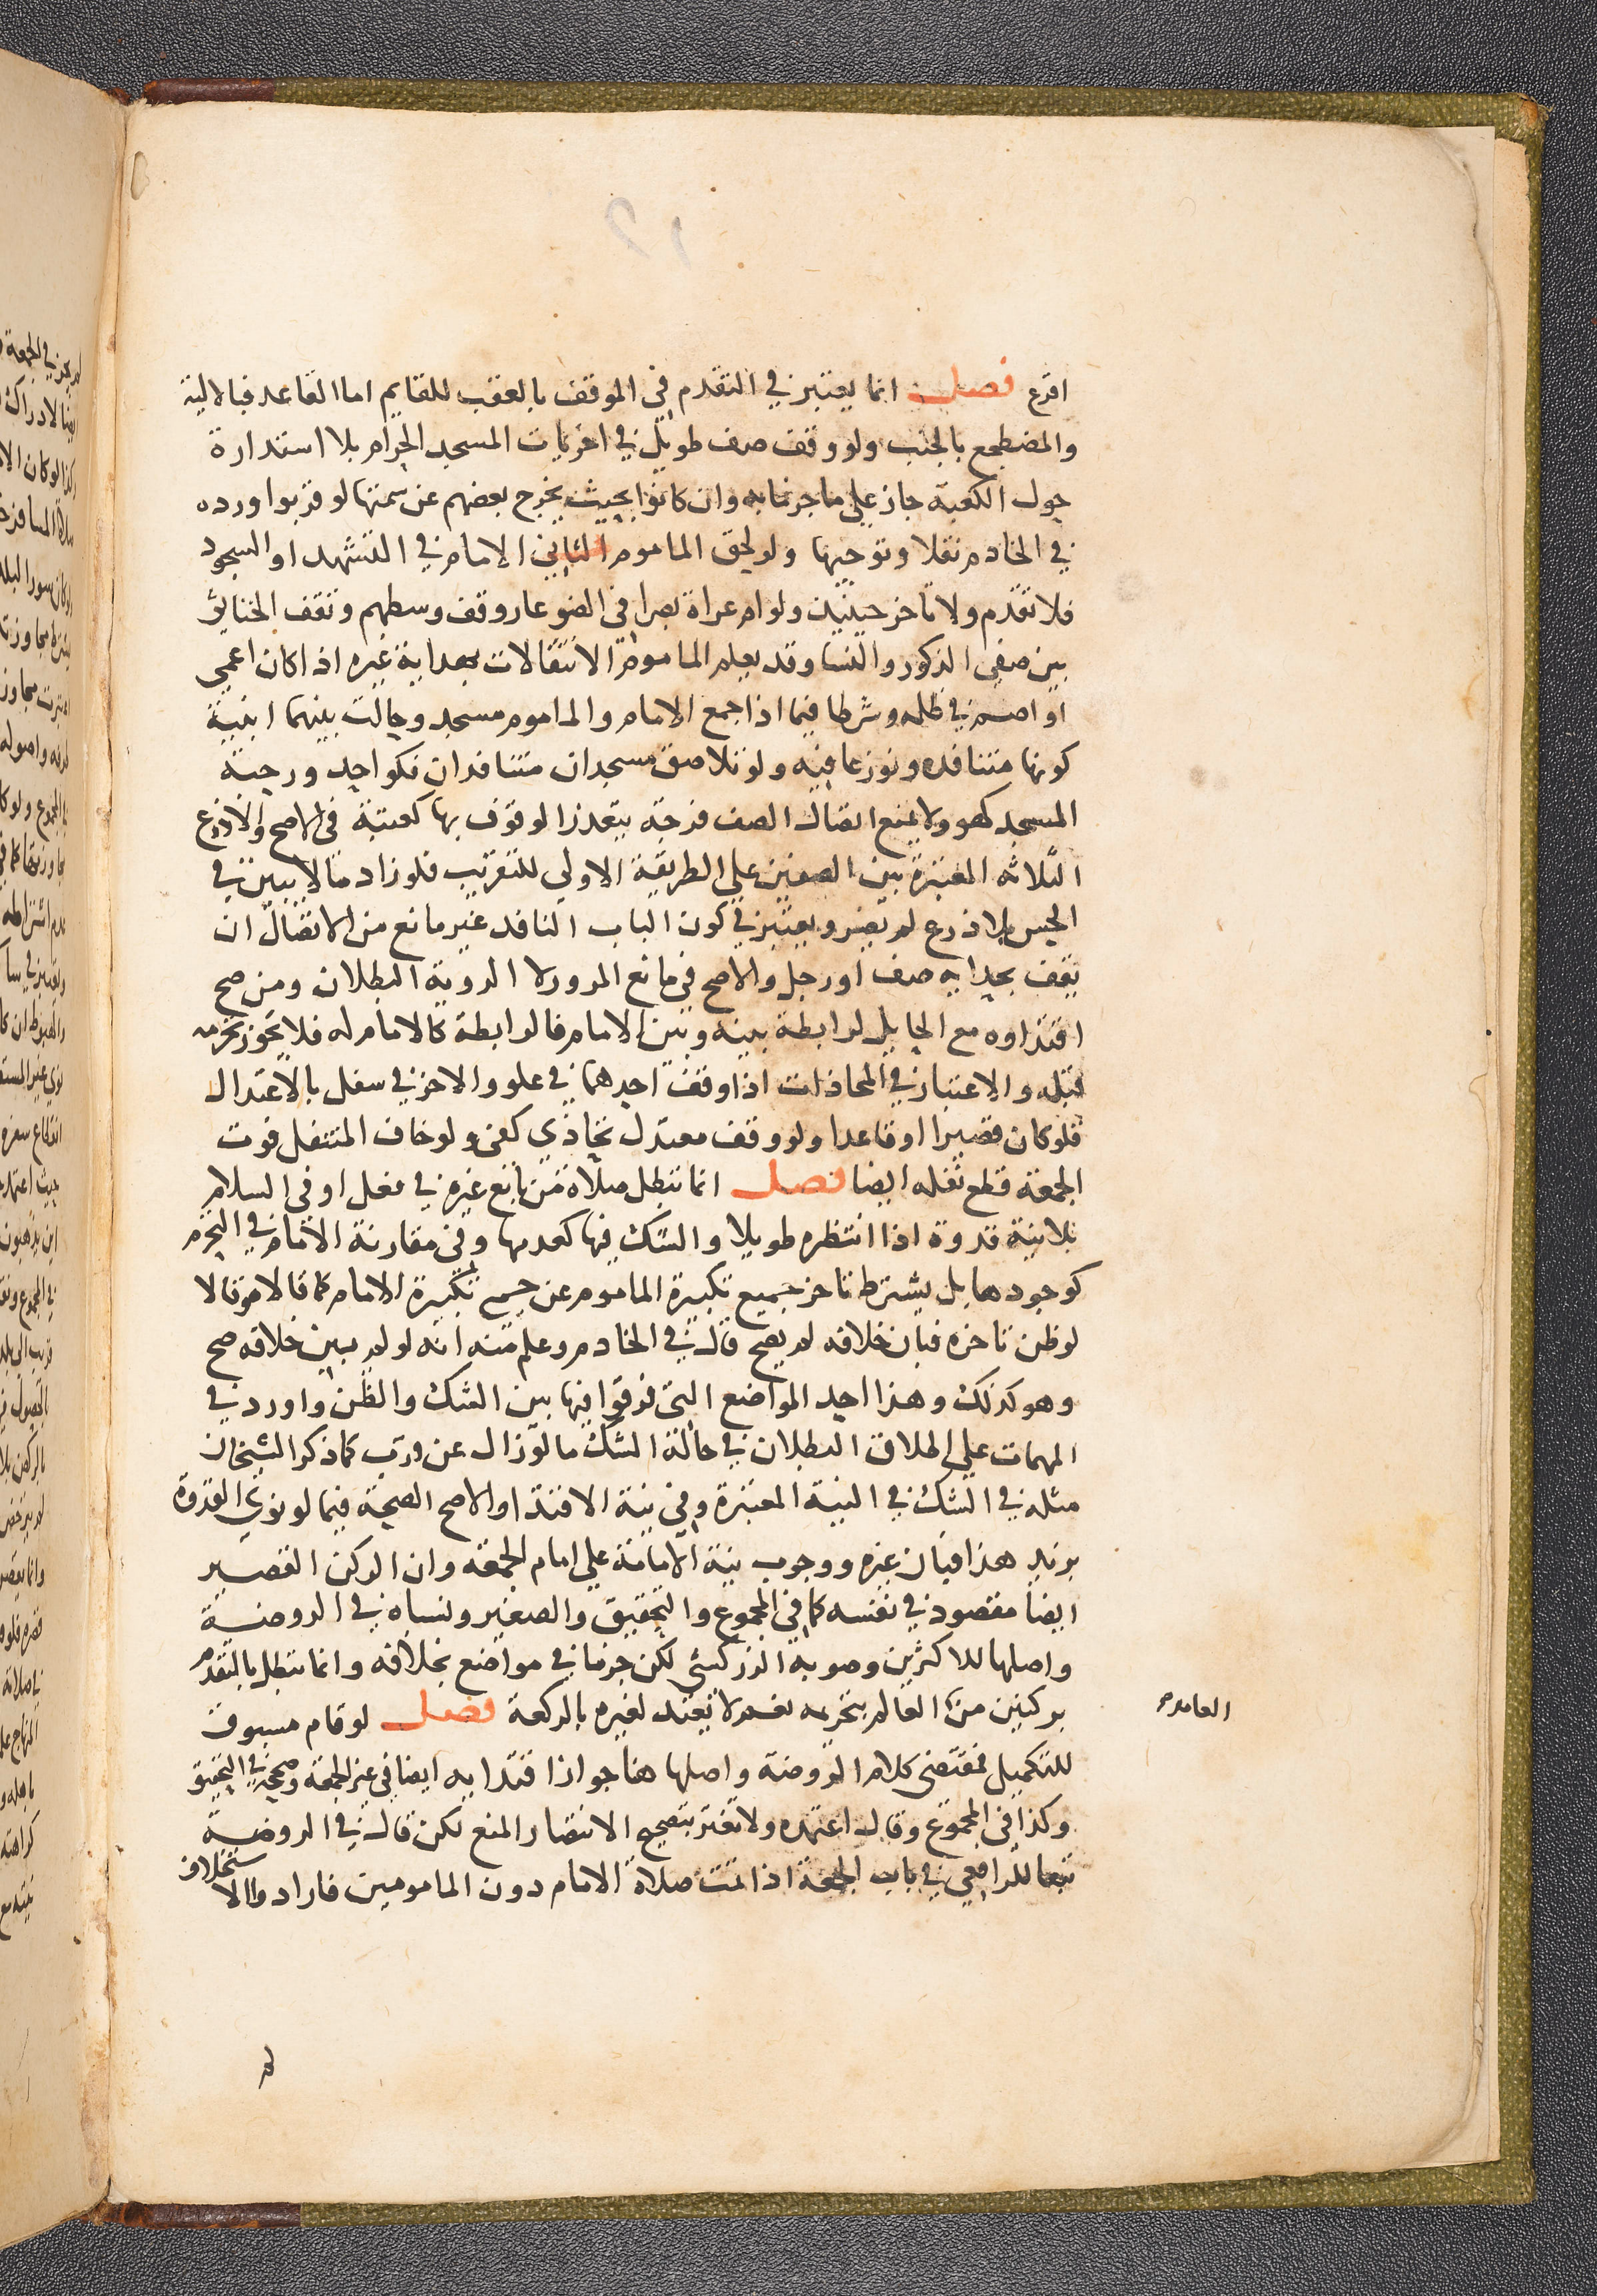 اقرع فصل انما يعتبر في التقدم في الموقف بالعقب للقايم اما القاعد فبالالية
والمضطجع بالجنب ولو وقف صف طويل في اخريات المسجد الحرام بلا استدارة
حول الكعبة جاز على ما جزما به وان كانوا بحيث يخرج بعضهم عن سمتها لو قربوا ورده
في الخادم نقلا وتوجيها ولو لحق الماموم الثاني الامام في التشهد او السجود
فلا تقدم ولا تاخر حينئذ ولو ام عراة بصرا في ضو عار وقف وسطهم وتقف الخناثى
بين صفي الذكور والنسا وقد يعلم الماموم الانتقالات بهداية غيره اذا كان اعمى
او اصم في ظلمه وشرطا فيما اذا جمع الامام والماموم مسجد وحالت بينهما ابنية
كونها متنافده ونوزعا فيه ولو تلاصق مسجدان متنافدان فكواحد ورحبة
المسجد كهو ولا يمنع اتصال الصف فرجة يتعذر الوقوف بها كعتبة في الاصح والاذرع
الثلاثه المعتبرة بين الصفين على الطريقة الاولى للتقريب فلو زاد ما لا يبين في
الحس بلا ذرع لم يضر ويعتبر في كون الباب النافد غير مانع من الاتصال ان
يقف بحدايه صف او رجل والاصح في مانع المرور لا الروية البطلان ومن صح
اقتداوه مع الحايل لرابطة بينه وبين الامام فالرابطة كالامام له فلا يجوز تحرمه
قبله والاعتبار في المحاذات اذا وقف احدهما في علو والاخر في سفل بالاعتدال
فلو كان قصيرا او قاعدا ولو وقف معتدل تحاذي كفى ولو خاف المتنفل فوت
الجمعة قطع نفله ايضا فصل انما تبطل صلاة من تابع غيره في فعل او في السلام
بلا نية قدوة اذا انتظره طويلا والشك فيها كعدمها وفي مقارنة الامام في التحرم
كوجودها بل يشترط تاخر جميع تكبيرة الماموم عن جميع تكبيرة الامام كما قالاه وقالا
لو ظن تاخره فبان خلافه لم يصح قال في الخادم وعلم منه انه لو لم يبين خلافه صح
وهو كذلك وهذا احد المواضع التي فرقوا فيها بين الشك والظن واورد في
المهمات على اطلاق البطلان في حالة الشك ما لو زال عن قرب كما ذكر الشيخان
مثله في الشك في النية المعتبرة وفي نية الاقتدا والاصح الصحة فيما لو نوى القدوة
بزيد هذا فبان غيره ووجوب نية الامامة على امام الجمعه وان الركن القصير
ايضا مقصود في نفسه كما في المجموع والتحقيق والصغير ونسباه في الروضة
واصلها للاكثرين وصوبه الزركشي لكن جزما في مواضع بخلافه وانما تبطل بالتقدم
بركنين من العالم بتحريمه نعم لا يعتد لغيره بالركعة فصل لو قام مسبوق
العامد
للتكميل فمقتضى كلام الروضة واصلها هنا جواز اقتدا به ايضا في غير الجمعة وصححه في التحقيق
وكذا في المجموع وقال اعتمده ولا تغتر بتصحيح الانتصار المنع لكن قال في الروضة
تبعا للرافعي في باب الجمعة اذا تمت صلاة الامام دون المامومين فارادوا الاستخلاف
لم